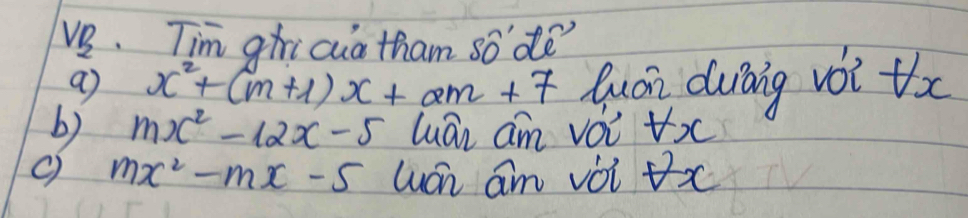 VD2. Tìm gtrị của tham số để
a) x² + (m+1)x + 2m + 7 luôn dương với ∀x
b) mx² - 12x - 5 luôn âm với ∀x
c) mx² - mx - 5 luôn âm với ∀x